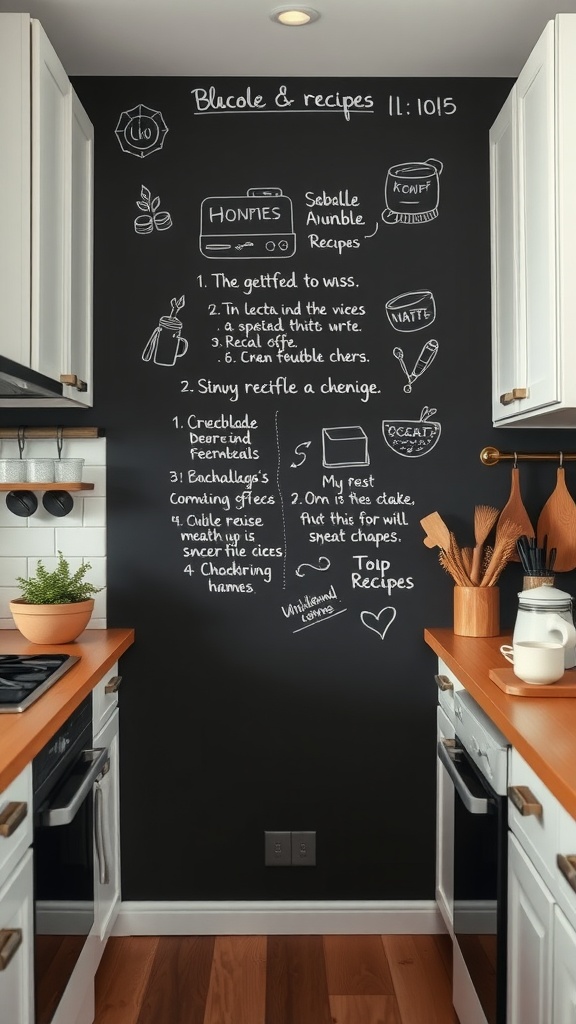 Blucole & recipes 11:1015
HONPIES
Seballe
Aunnble
Recipes
KONFF
1. The getffed to wiss.
2. Tn lecta ind the vices
. a spelad thitt wrte.
3. Recal offe.
6. Cnen feutble chers.
NATTE
2. Sinvy recifle a chenige.
1. Cruecblade
Deere ind
Feernbeals
3! Bachallags's
Comnting gffecs
4. Cuble reuise
meath up is
sncer file cices
4 Chocktring
hwmes
OCEAT
My rest
2. Orn is thes clake,
fhut this for will
sneat chapes.
Toip
Recipes